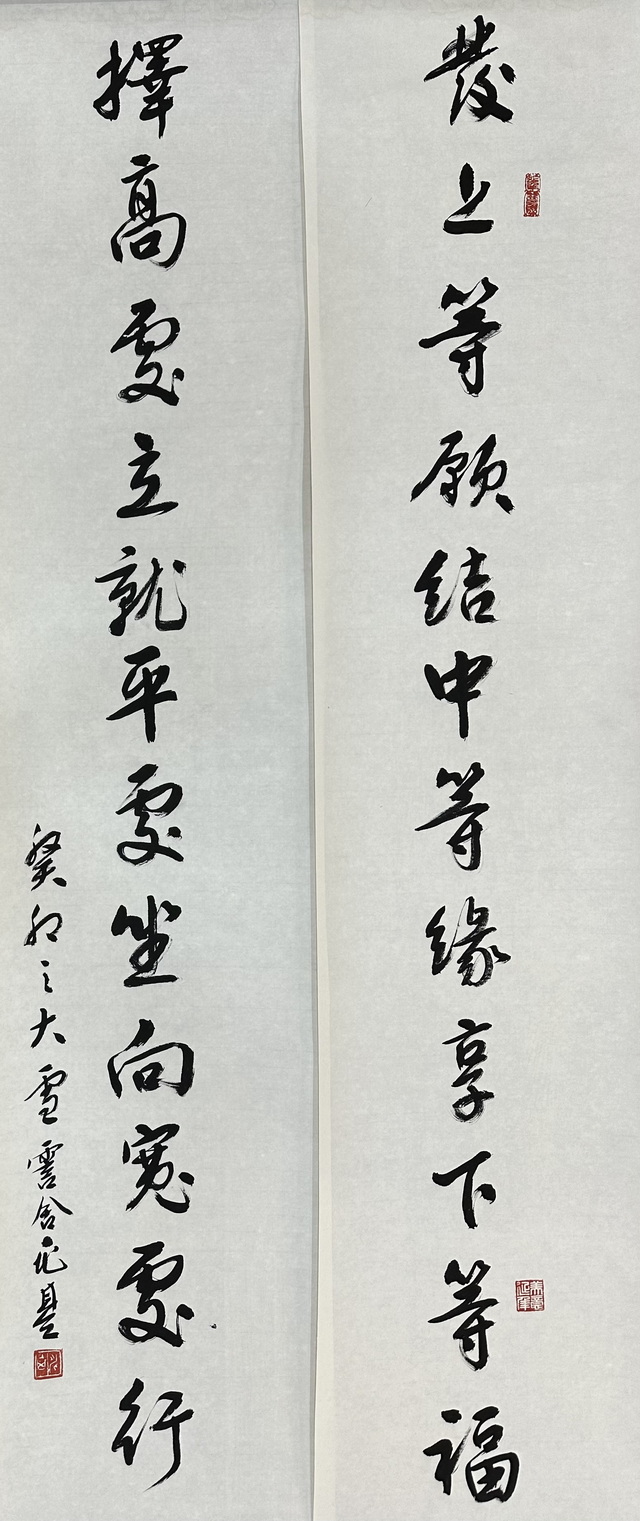 發上等願結中等緣享下等福
擇高處立就平處坐向寬處行
癸卯之大雪